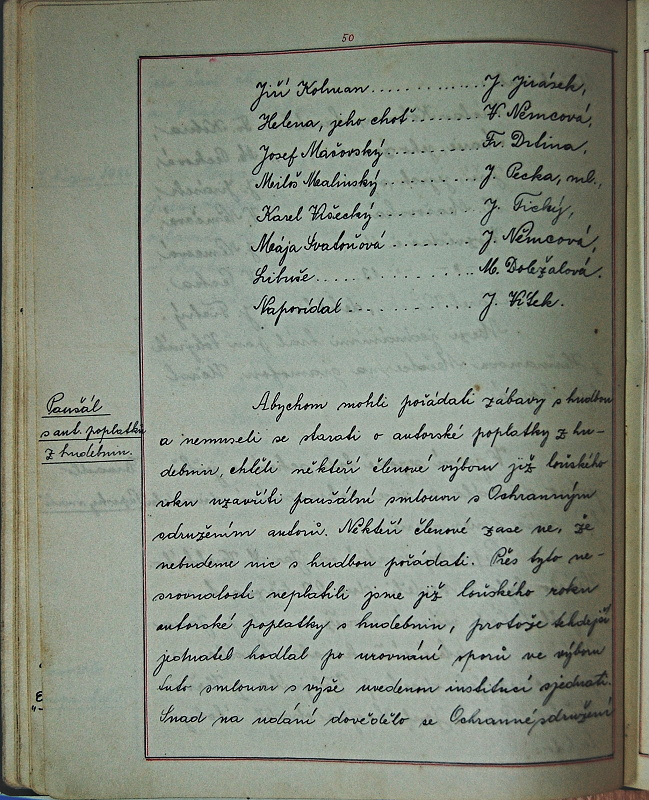 50
Jiří Kolman.............J. Jirásek,
Helena, jeho choť........V. Němcová,
Josef Mačovský..........Fr. Drtina.
Miloš Malinský..........J. Pecka, ml.,
Karel Všecký...........J. Tichý,
Mája Svatoňová..........J. Němcová,
Libuše................M. Doležalová.
Napovídal.............J. Vítek.
Paušál
s aut. poplatku
z hudebnin.
Abychom mohli pořádati zábavy s hudbou
a nemuseli se starati o autorské poplatky z hu-
debnin, chtěli někteří členové výboru již loňského
roku uzavříti paušální smlouvu s Ochranným
sdružením autorů. Někteří členové zase ne, že
nebudeme nic s hudbou pořádati. Přes tyto ne-
srovnalosti neplatili jsme již loňského roku
autorské poplatky s hudebnin, protože tehdejší
jednatel hodlal po urovnání sporů ve výboru
tuto smlouvu s výše uvedenou institucí sjednati.
Snad na udání dovědělo se Ochranné sdružení